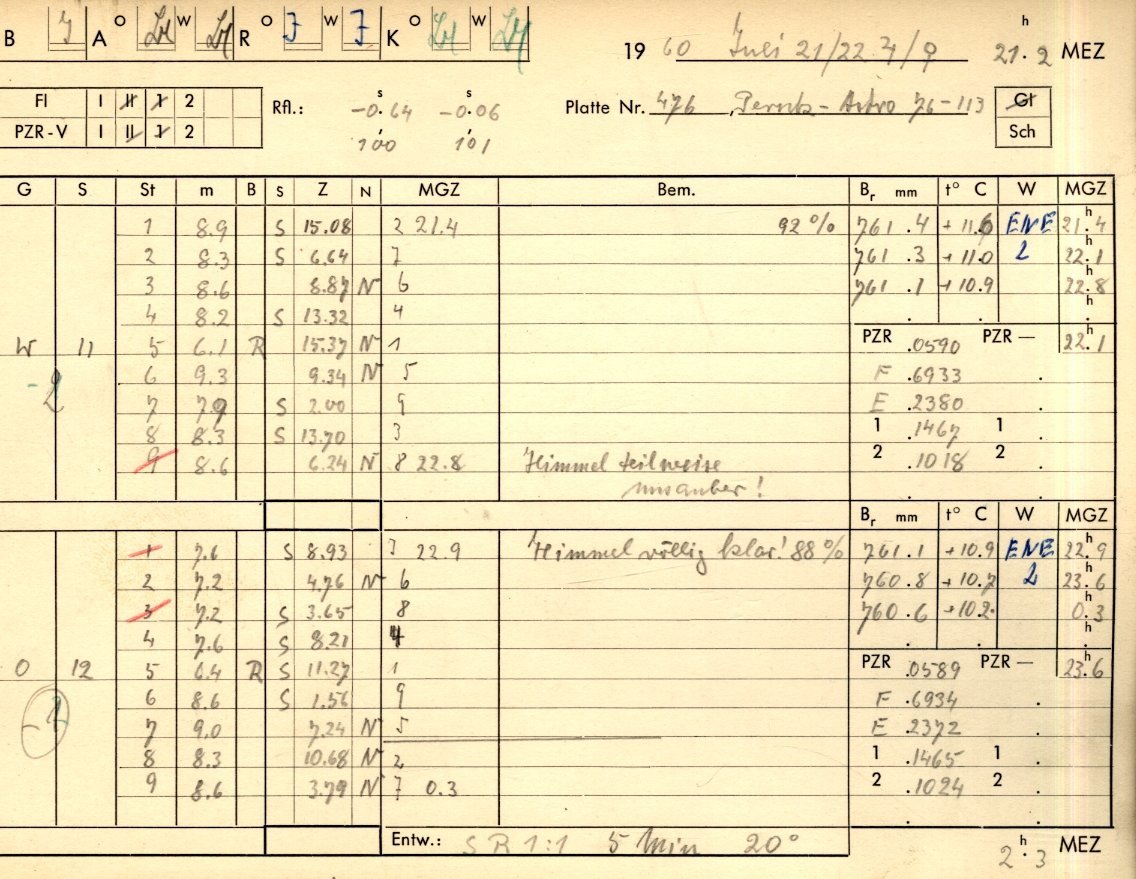 B J A O W R O J W J K O W 19 60 Juli 21/22 ♃/♀ 21.2 h MEZ
Fl I II 1 2 Rfl.: -0.64 s -0.06 s Platte Nr. 476, Perutz-Astro 76-113 Gl
PZR-V I II 1 2 100 101 Sch
G S St m B S Z N MGZ Bem. Br mm t° C W MGZ
1 8.9 S 15.08 2 21.4 92% 761.4 +11.6 ENE 21.4 h
2 8.3 S 6.64 7 761.3 +11.0 2 22.1 h
3 8.6 8.87 N 6 761.1 +10.9 22.8 h
4 8.2 S 13.32 4 . . . h
W 11 5 6.1 R 15.37 N 1 PZR .0590 PZR — 22.1 h
-2 6 9.3 9.34 N 5 F .6933 .
7 7.9 S 2.00 9 E .2380 .
8 8.3 S 13.70 3 1 .1467 1 .
9 8.6 6.24 N 8 22.8 Himmel teilweise 2 .1018 2 .
unsauber! . .
Br mm t° C W MGZ
1 7.6 S 8.93 3 22.9 Himmel völlig klar! 88% 761.1 +10.9 ENE 22.9 h
2 7.2 4.76 N 6 760.8 +10.7 2 23.6 h
3 7.2 S 3.65 8 760.6 +10.2 0.3 h
4 7.6 S 8.21 4 . . . h
O 12 5 6.4 R S 11.27 1 PZR .0589 PZR — 23.6 h
6 8.6 S 1.56 9 F .6934 .
7 9.0 7.24 N 5 E .2372 .
8 8.3 10.68 N 2 1 .1465 1 .
9 8.6 3.79 N 7 0.3 2 .1024 2 .
. .
Entw.: SR 1:1 5 Min 20° 2.3 h MEZ